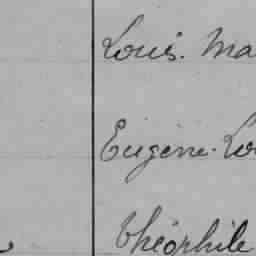 Louis. Ma
Eugène. Lo
Théophile